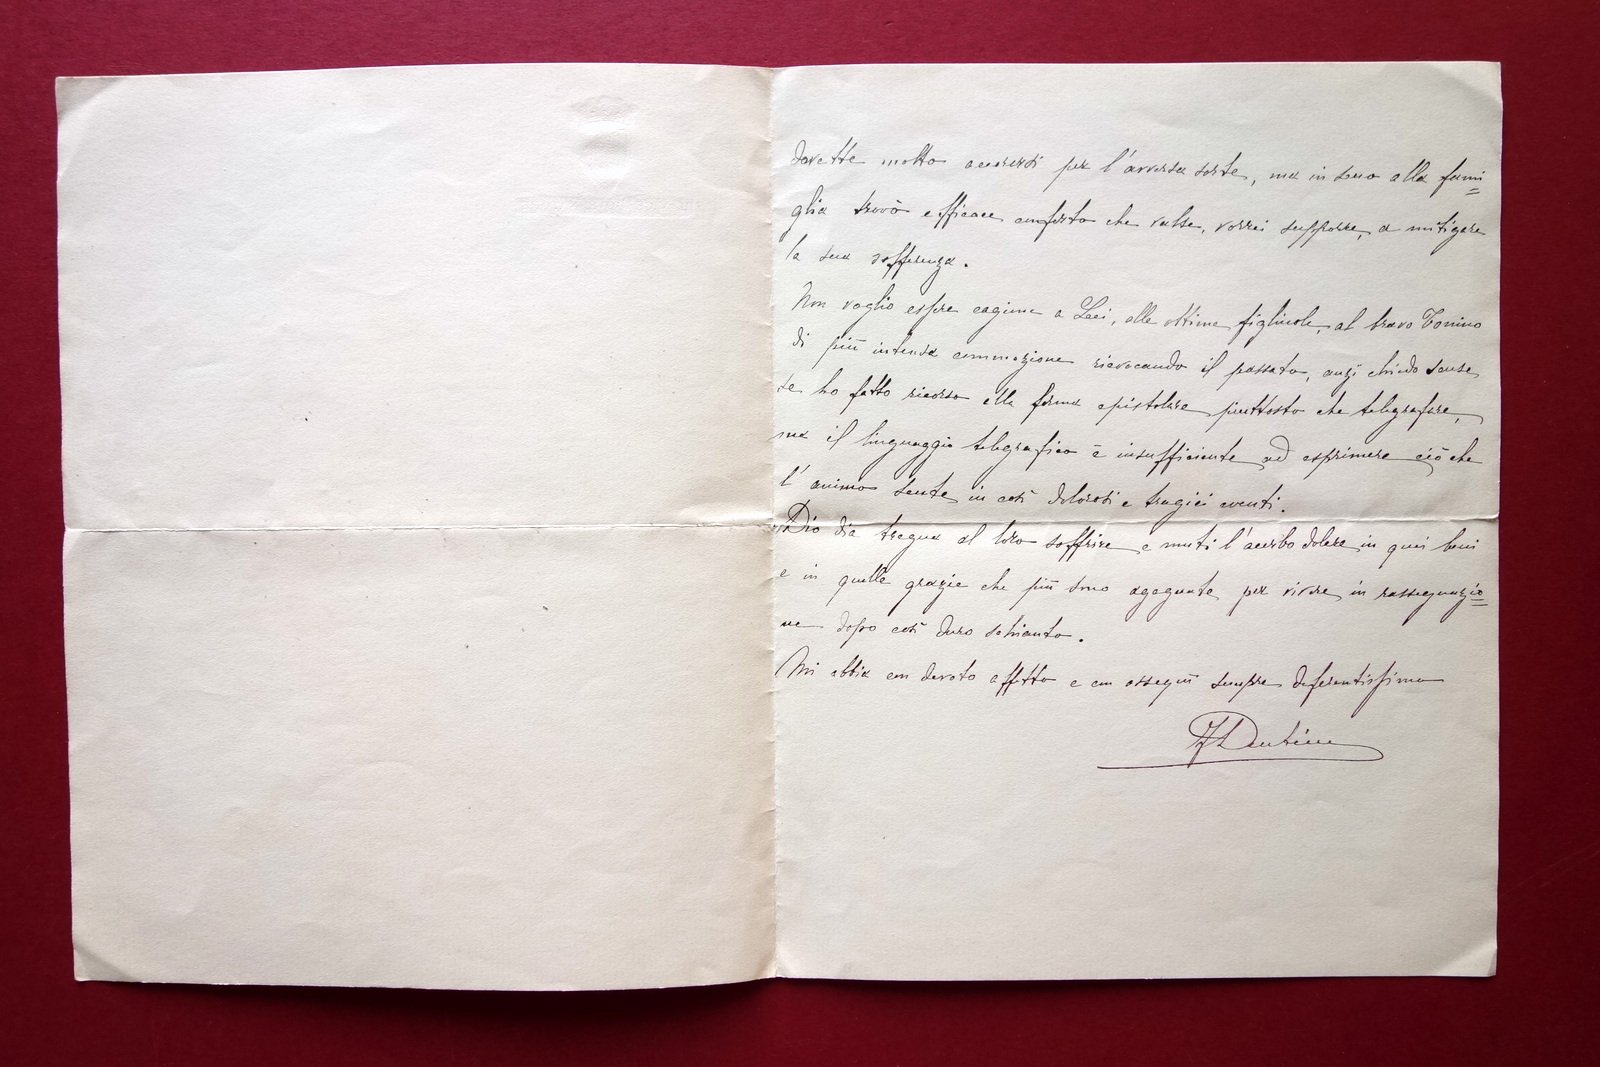 dovette molto accorarsi per l'avversa sorte, ma in seno alla fami=
glia trovò efficace conforto che valse, vorrei supporre, a mitigare
la sua sofferenza.
Non voglio essere cagione a Lei, alle ottime figliuole, al bravo Tonino
di più intensa commozione rievocando il passato, anzi chiedo scusa
se ho fatto ricorso alla forma epistolare piuttosto che telegrafare,
ma il linguaggio telegrafico è insufficiente ad esprimere ciò che
l'animo sente in così dolorosi e tragici eventi.
Dio dia tregua al loro soffrire e muti l'acerbo dolore in quei beni
e in quelle grazie che più sono adeguate per vivere in rassegnazio=
ne dopo così duro schianto.
Mi abbia con devoto affetto e con ossequi sempre deferentissimo